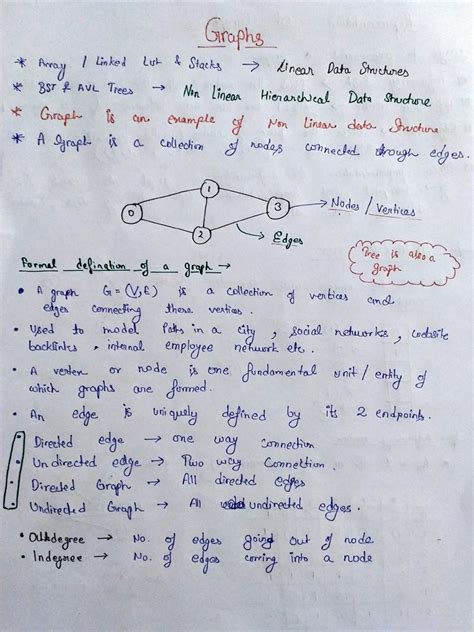 Graphs
* Array / Linked List & Stacks → Linear Data Structures
* BST & AVL Trees → Non Linear Hierarchical Data Structure
* Graph is an example of Non Linear data Structure
* A graph is a collection of nodes connected through edges.
1
0
3
→ Nodes / Vertices
2
→ Edges
Tree is also a
graph
Formal defination of a graph →
• A graph G = (V, E) is a collection of vertices and
edges connecting these vertices.
• Used to model Paths in a city, social networks, website
backlinks, internal employee network etc.
• A vertex or node is one fundamental unit / entity of
which graphs are formed.
• An edge is uniquely defined by its 2 endpoints.
• Directed edge → one way connection
• Undirected edge → Two way Connection.
• Directed Graph → All directed edges
• Undirected Graph → All undirected edges.
• Outdegree → No. of edges going out of node
• Indegree → No. of edges coming into a node